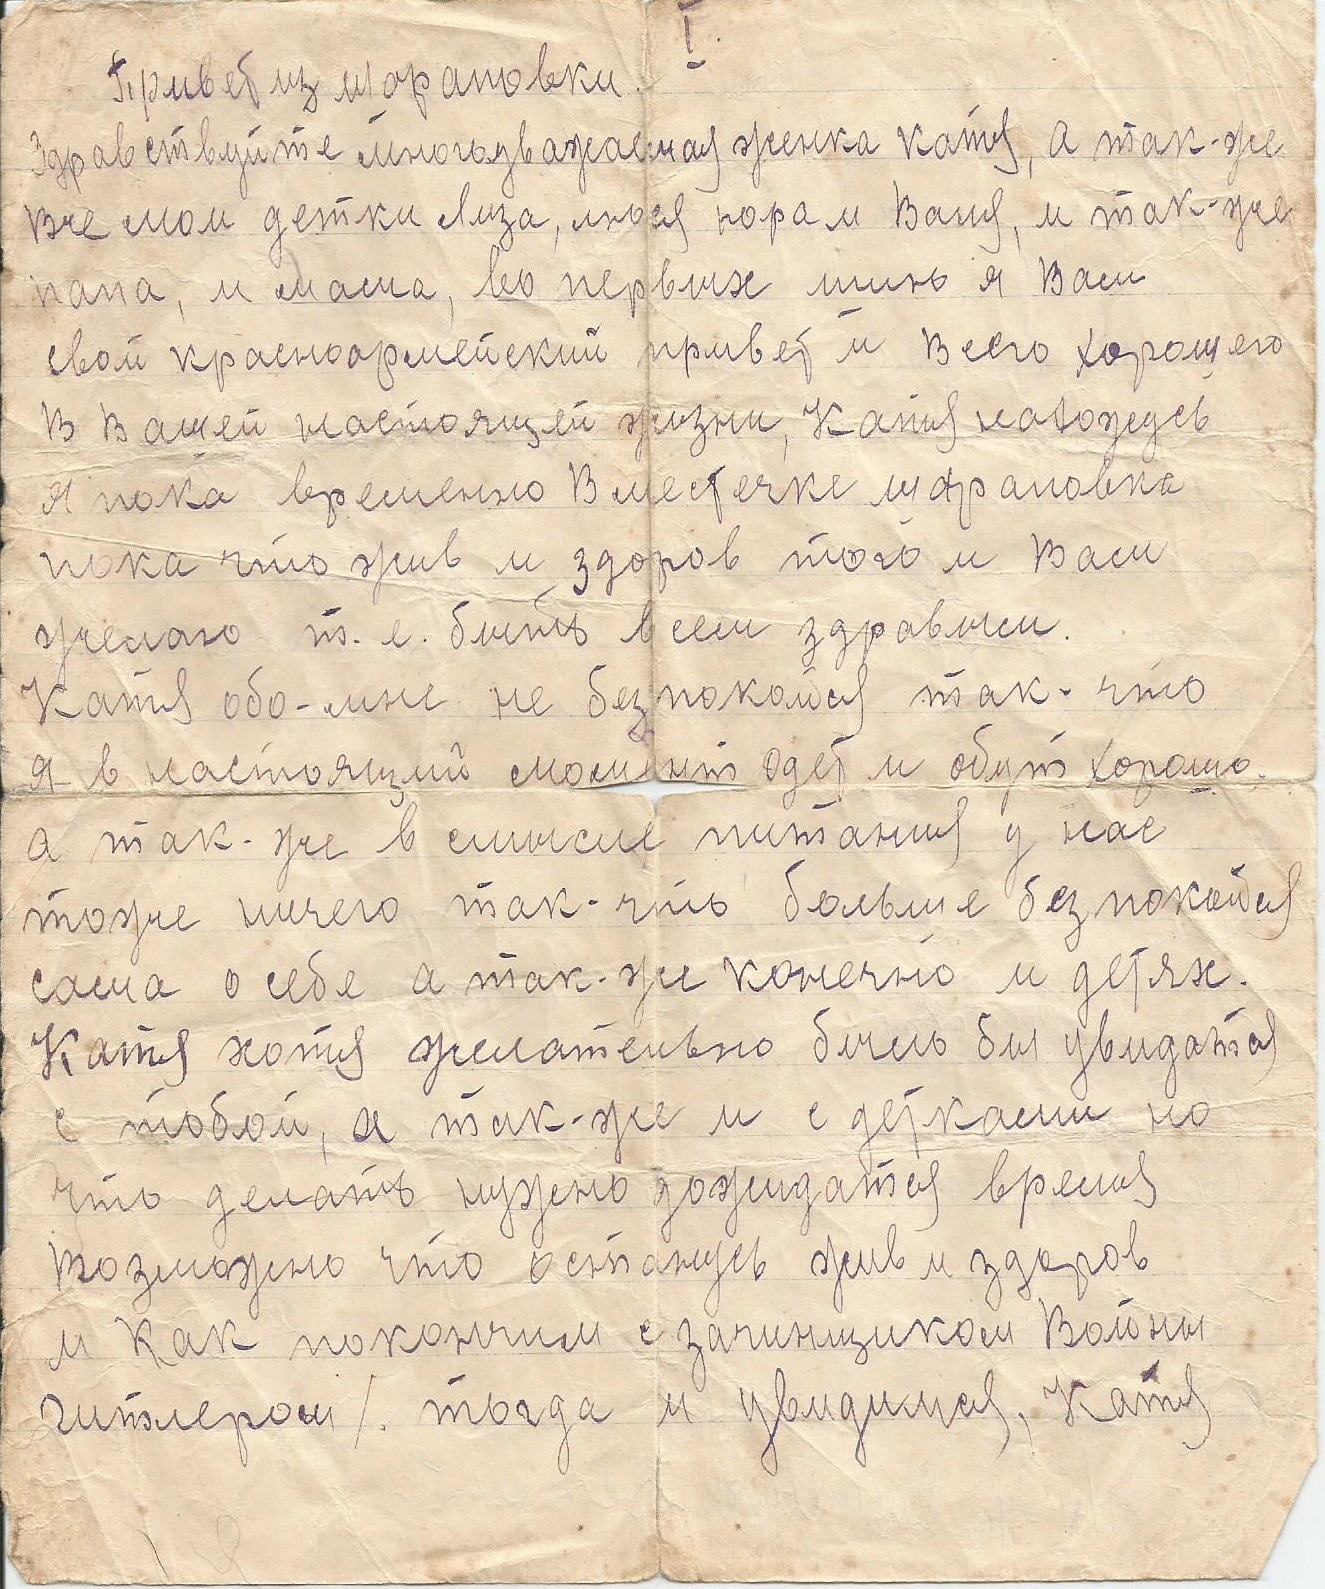 I.
Привет из Шарановки.
Здравствуйте многоуважаемая женка Катя, а так-же
Все мои детки Лиза, люся нюра и Ваня, и так-же
папа, и мама, во первых шлю я Вам
свой красноармейский привет и Всего хорошего
В Вашей настоящей жизни, Катя нахожусь
я пока временно В местечке
пока что жив и здоров того и Вам
желаю т.е. быть всем здравыми.
Катя обо-мне не безпокойся так-что
я в настоящий момент одет и обут хорошо.
а так-же в смысле питания у нас
тоже ничего так-что больше безпокойся
сама о себе а так-же конечно и детях.
Катя хотя желательно было бы увидатся
с тобой, а так-же и с детками но
что делать нужно дожидатся время
Возможно что останусь жив и здоров
и Как покончим с зачинщиком Войны
гитлером/. тогда и увидимся, Катя